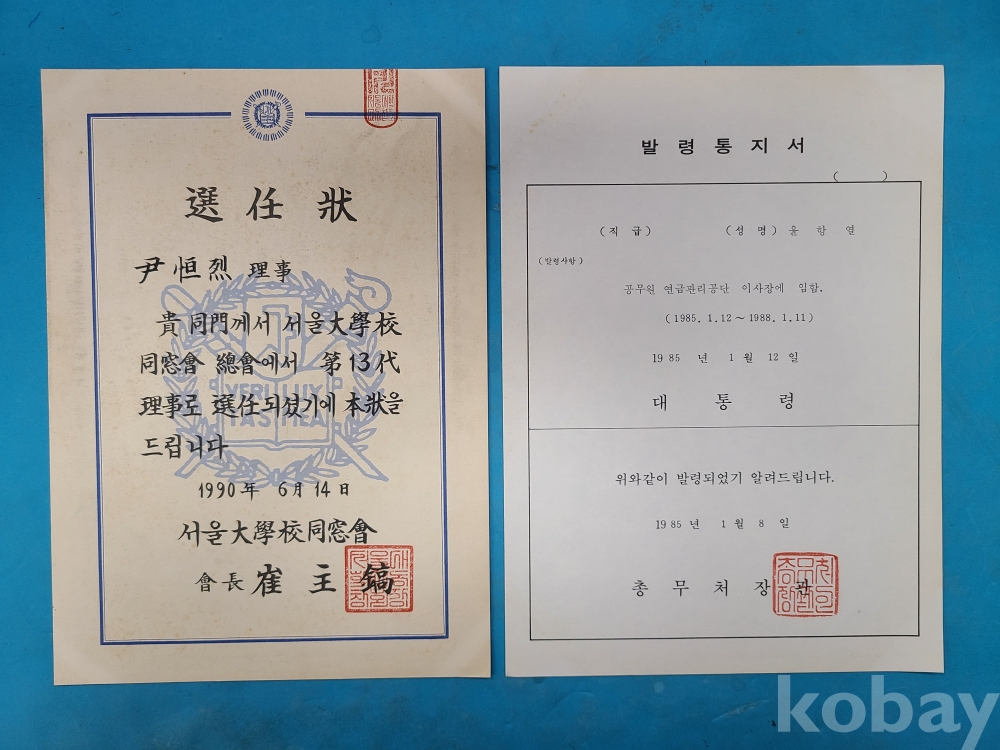 選任狀
尹恒烈 理事
貴同門께서 서울大學校
同窓會 總會에서 第13代
理事로 選任되셨기에 本狀을
드립니다
1990年 6月 14日
서울大學校同窓會
會長 崔主鎬
VERI LUX
TAS MEA
발령통지서
( )
(직급) (성명) 윤항열
(발령사항)
공무원 연금관리공단 이사장에 임함.
(1985. 1.12～1988. 1.11)
1985 년 1 월 12 일
대통령
위와같이 발령되었기 알려드립니다.
1985 년 1 월 8 일
총무처장관
kobay